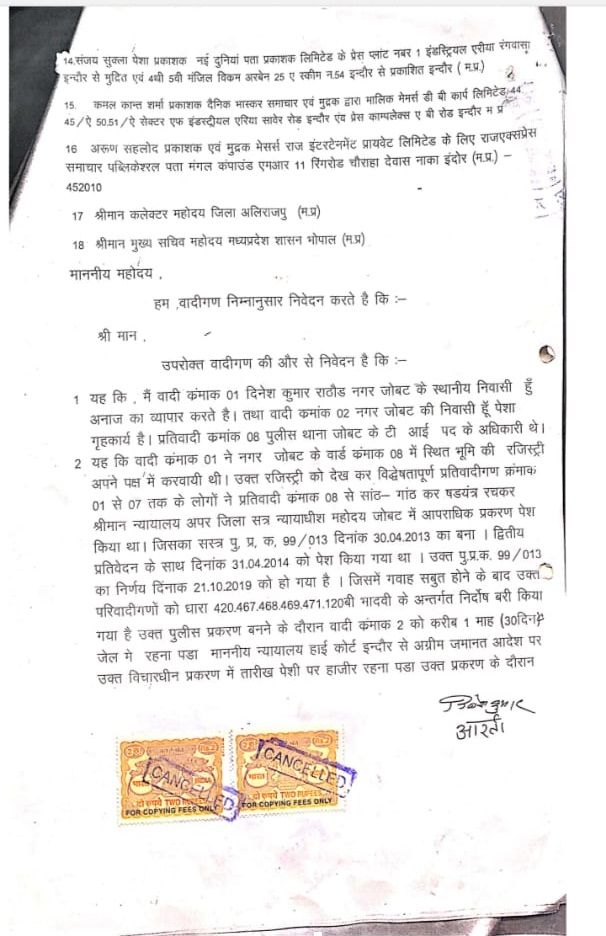 14.संजय सुक्ला पेशा प्रकाशक नई दुनियां पता प्रकाशक लिमिटेड के प्रेस प्लांट नबर 1 इंडस्ट्रियल एरीया रंगवासा
इन्दौर से मुदित एवं 4थी 5वी मंजिल विकम अरबेन 25 ए स्कीम न.54 इन्दौर से प्रकाशित इन्दौर ( म.प्र.)
15. कमल कान्त शर्मा प्रकाशक दैनिक भास्कर समाचार एवं मुद्रक द्वारा मालिक मेमर्स डी बी कार्प लिमिटेड 44
45/ऐ 50.51/ऐ सेक्टर एफ इंडस्ट्रीयल एरिया सावेर रोड इन्दौर एंव प्रेस काम्पलेक्स ए बी रोड इन्दौर म प्र
16 अरूण सहलोद प्रकाशक एवं मुद्रक मेसर्स राज इंटरटेनमेंट प्रायवेट लिमिटेड के लिए राजएक्सप्रेस
समाचार पब्लिकेश्रल पता मंगल कंपाउंड एमआर 11 रिंगरोड चौराहा देवास नाका इंदोर (म.प्र.) –
452010
17 श्रीमान कलेक्टर महोदय जिला अलिराजपु (म.प्र)
18 श्रीमान मुख्य सचिव महोदय मध्यप्रदेश शासन भोपाल (म.प्र)
माननीय महोदय ,
हम ,वादीगण निम्नानुसार निवेदन करते है कि :–
श्री मान ,
उपरोक्त वादीगण की और से निवेदन है कि :–
1 यह कि , मैं वादी कंमाक 01 दिनेश कुमार राठौड नगर जोबट के स्थानीय निवासी हुँ
अनाज का व्यापार करते है। तथा वादी कमांक 02 नगर जोबट की निवासी हूॅ पेशा
गृहकार्य है। प्रतिवादी कमांक 08 पुलीस थाना जोबट के टी आई पद के अधिकारी थे।
2 यह कि वादी कंमाक 01 ने नगर जोबट के वार्ड कंमाक 08 में स्थित भूमि की रजिस्ट्री
अपने पक्ष में करवायी थी। उक्त रजिस्ट्री को देख कर विद्धेषतापूर्ण प्रतिवादीगण क्रंमाक
01 से 07 तक के लोगों ने प्रतिवादी कंमाक 08 से सांठ– गांठ कर षडयंत्र रचकर
श्रीमान न्यायालय अपर जिला सत्र न्यायाधीश महोदय जोबट में आपराधिक प्रकरण पेश
किया था। जिसका सस्त्र पु, प्र, क, 99/013 दिनांक 30.04.2013 का बना । द्वितीय
प्रतिवेदन के साथ दिनांक 31.04.2014 को पेश किया गया था । उक्त पु.प्र.क. 99/013
का निर्णय दिंनाक 21.10.2019 को हो गया है । जिसमें गवाह सबुत होने के बाद उक्त
परिवादीगणों को धारा 420.467.468.469.471.120बी भादवी के अन्तर्गत निर्दोष बरी किया
गया है उक्त पुलीस प्रकरण बनने के दौरान वादी कंमाक 2 को करीब 1 माह (30दिन)
जेल मे रहना पडा माननीय न्यायालय हाई कोर्ट इन्दौर से अग्रीम जमानत आदेश पर
उक्त विचारधीन प्रकरण में तारीख पेशी पर हाजीर रहना पडा उक्त प्रकरण के दौरान
दिनेश कुमार
आरती
भारत INDIA
CANCELLED
दो रुपये TWO RUPEES
FOR COPYING FEES ONLY
भारत
CANCELLED
दो रुपये TWO RUPEES
FOR COPYING FEES ONLY